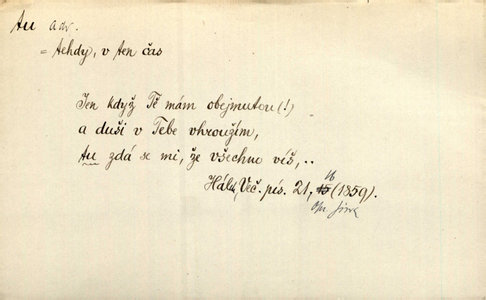 tu adv.
= tehdy, v ten čas
Jen když Tě mám obejmutou(!)
a duši v Tebe vhroužím,
tu zdá se mi, že všechno víš, ..
Hálk, Več. pís. 21, 15 16 (1859).